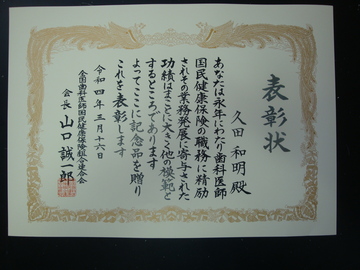 表彰状
久田和明殿
あなたは永年にわたり歯科医師
国民健康保険の職務に精励
されその業務発展に寄与された
功績はまことに大きく他の模範と
するところであります
よってここに記念品を贈り
これを表彰します
令和四年三月十六日
全国歯科医師国民健康保険組合連合会
会長 山口誠一郎